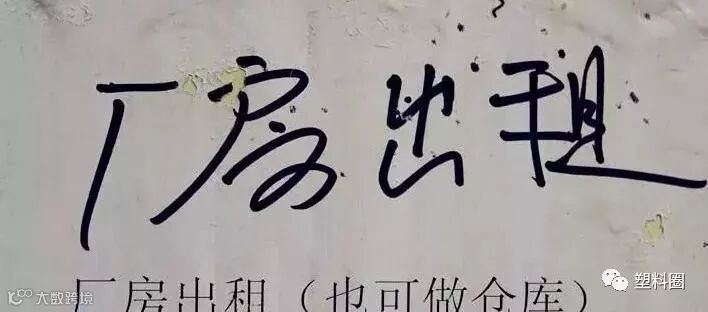 厂房出租
厂房出租（也可做仓库）
塑料圈
大数跨境